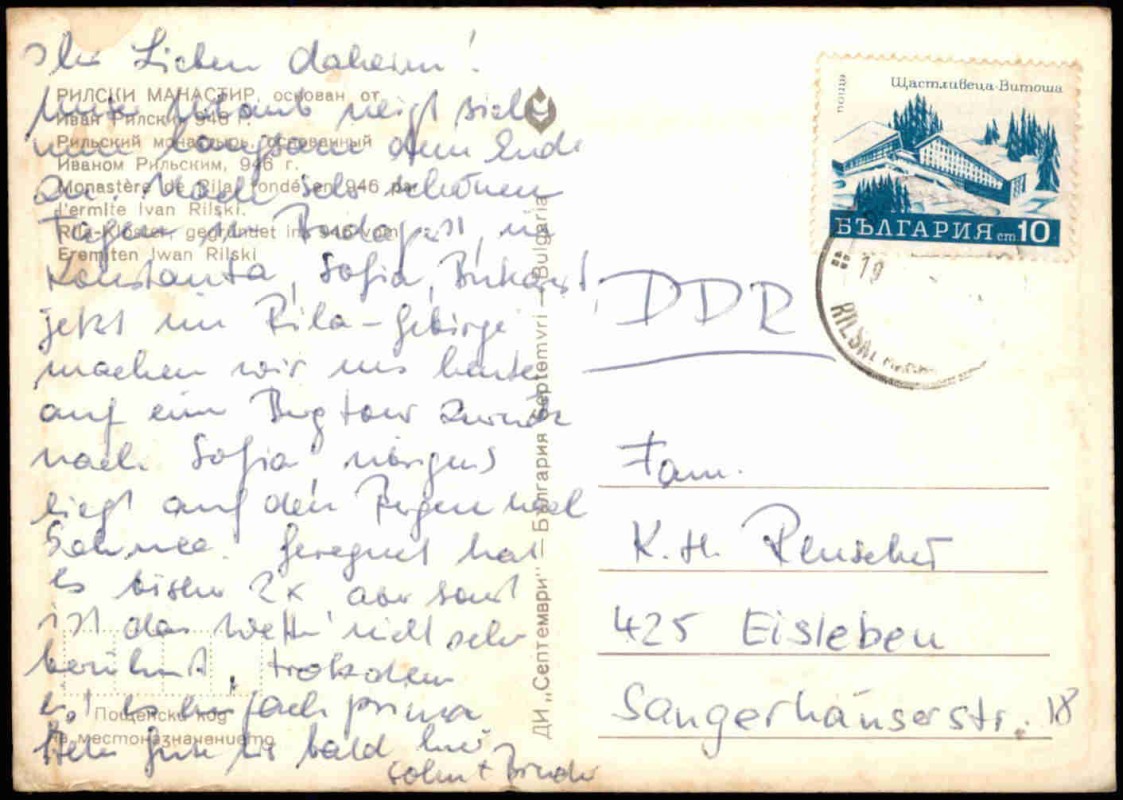 Ihr Lieben daheim!
Unser Urlaub neigt sich
nun langsam dem Ende
zu. Nach sehr schönen
Tagen in Budapest, in
Konstanta, Sofia, Bukarest,
jetzt im Rila-Gebirge
machen wir uns heute
auf eine Bergtour zurück
nach Sofia
liegt auf den Bergen noch
Schnee. Geregnet hat
es bisher 2x aber sonst
ist das Wetter nicht sehr
berühmt, trotzdem
ist es einfach prima
bis bald
Sohn + Bruder
РИЛСКИ МАНАСТИР, основан от
Иван Рилски, 946 г.
Рильский монастырь, основанный
Иваном Рильским, 946 г.
Monastère de Rila, fondé en 946 par
l'ermite Ivan Rilski.
Rila-Kloster, gegründet im 946 vom
Eremiten Iwan Rilski
Пощенски код
на местоназначението
ДИ „Септември" — България Septemvri — Bulgaria
поща
Щастливеца-Витоша
БЪЛГАРИЯ ст 10
19
DDR
Fam.
K. H.
425 Eisleben
Sangerhäuserstr. 18